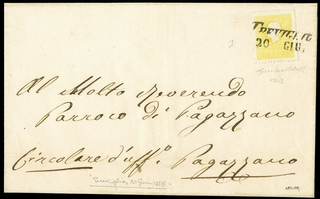 TREVIGLIO
20 GIU.
Al Molto Reverendo
Parroco di Pagazzano
Circolare d'uff.º Pagazzano